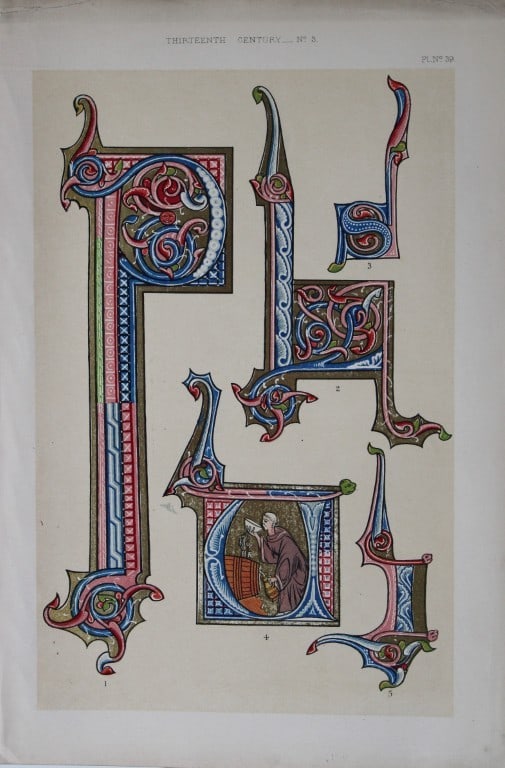 THIRTEENTH CENTURY__ Nº 3.
PL.Nº 39
3
2
4
5
1